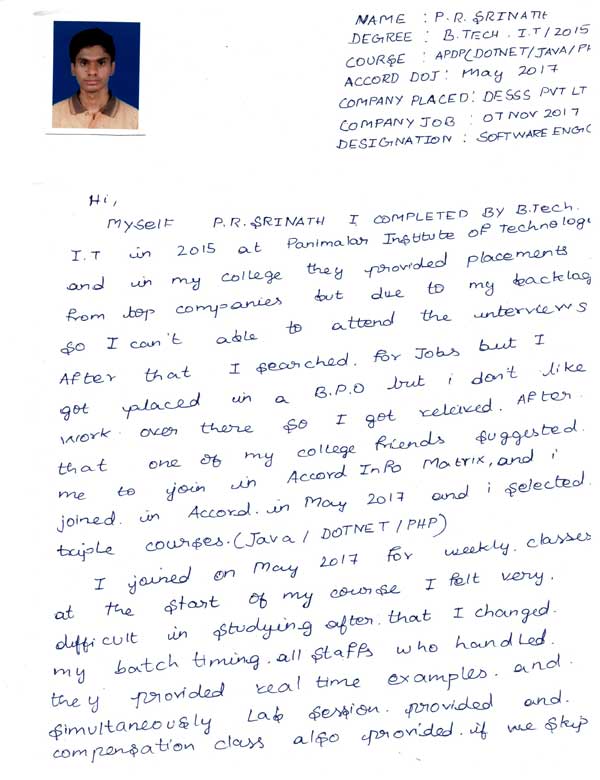 NAME : P.R. SRINATH
DEGREE : B.TECH. I.T / 2015
COURSE : APDP(DOTNET/JAVA/PH
ACCORD DOJ : May 2017
COMPANY PLACED : DESSS PVT LT
COMPANY JOB : 07 NOV 2017
DESIGNATION : SOFTWARE ENGC
Hi,
Myself P.R. SRINATH I COMPLETED BY B.Tech.
I.T in 2015 at Panimalar Institute of Technologi
and in my college they provided placements
from top companies but due to my backlog
So I can't able to attend the interviews
After that I searched. for Jobs but I
got placed in a B.P.O but i don't like
work over there so I got releived. After.
that one of my college friends suggested.
me to join in Accord Info Matrix, and i
joined. in Accord. in May 2017 and i selected.
triple courses. (Java / DOTNET / PHP)
I joined on May 2017 for weekly. classes
at the start of my course I felt very.
difficult in studying after. that I changed.
my batch timing. all staffs who handled.
they provided real time examples. and.
simultaneously Lab session. provided and.
compensation class also provided. if we skip